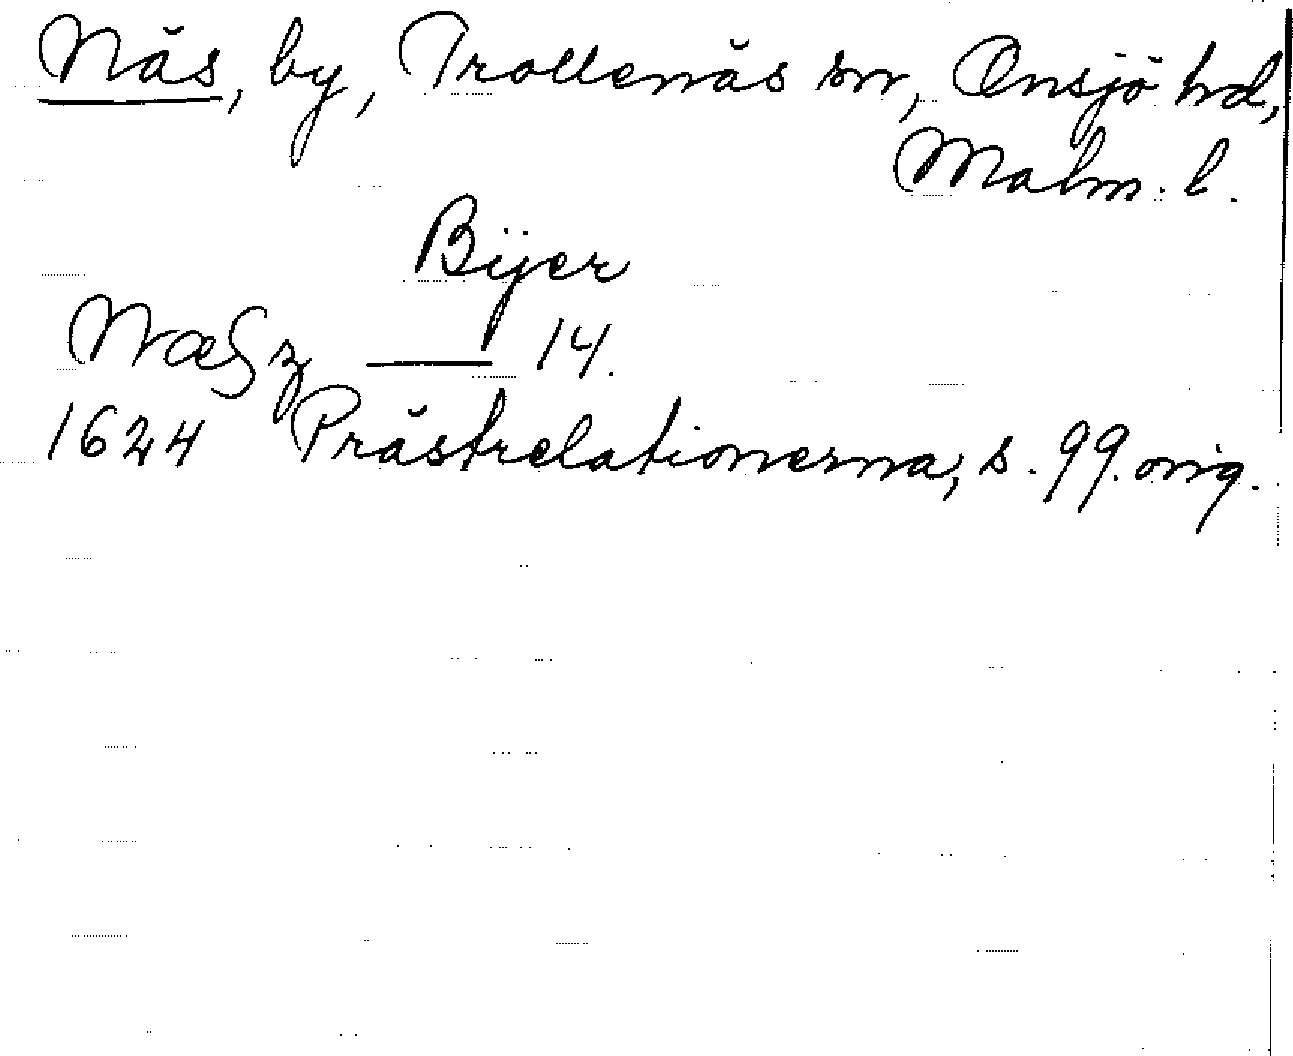 Näs, by, Trollenäs sn, Onsjö hd,
Malm. l.
Bÿer
Næsz —— 14.
1624 Prästrelationerna, s. 99. orig.